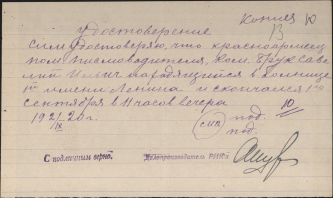 Копия
Удостоверение
Сим удостоверяю, что красноармеец
пом. письмоводителя, ком. Брук Саве
лий Ильич находящийся в больнице
1ая имени Ленина и скончался 1го
Сентября в 11 часов вечера
192 20 г.
под.
под.
10
С подлинным верно.
Делопроизводитель